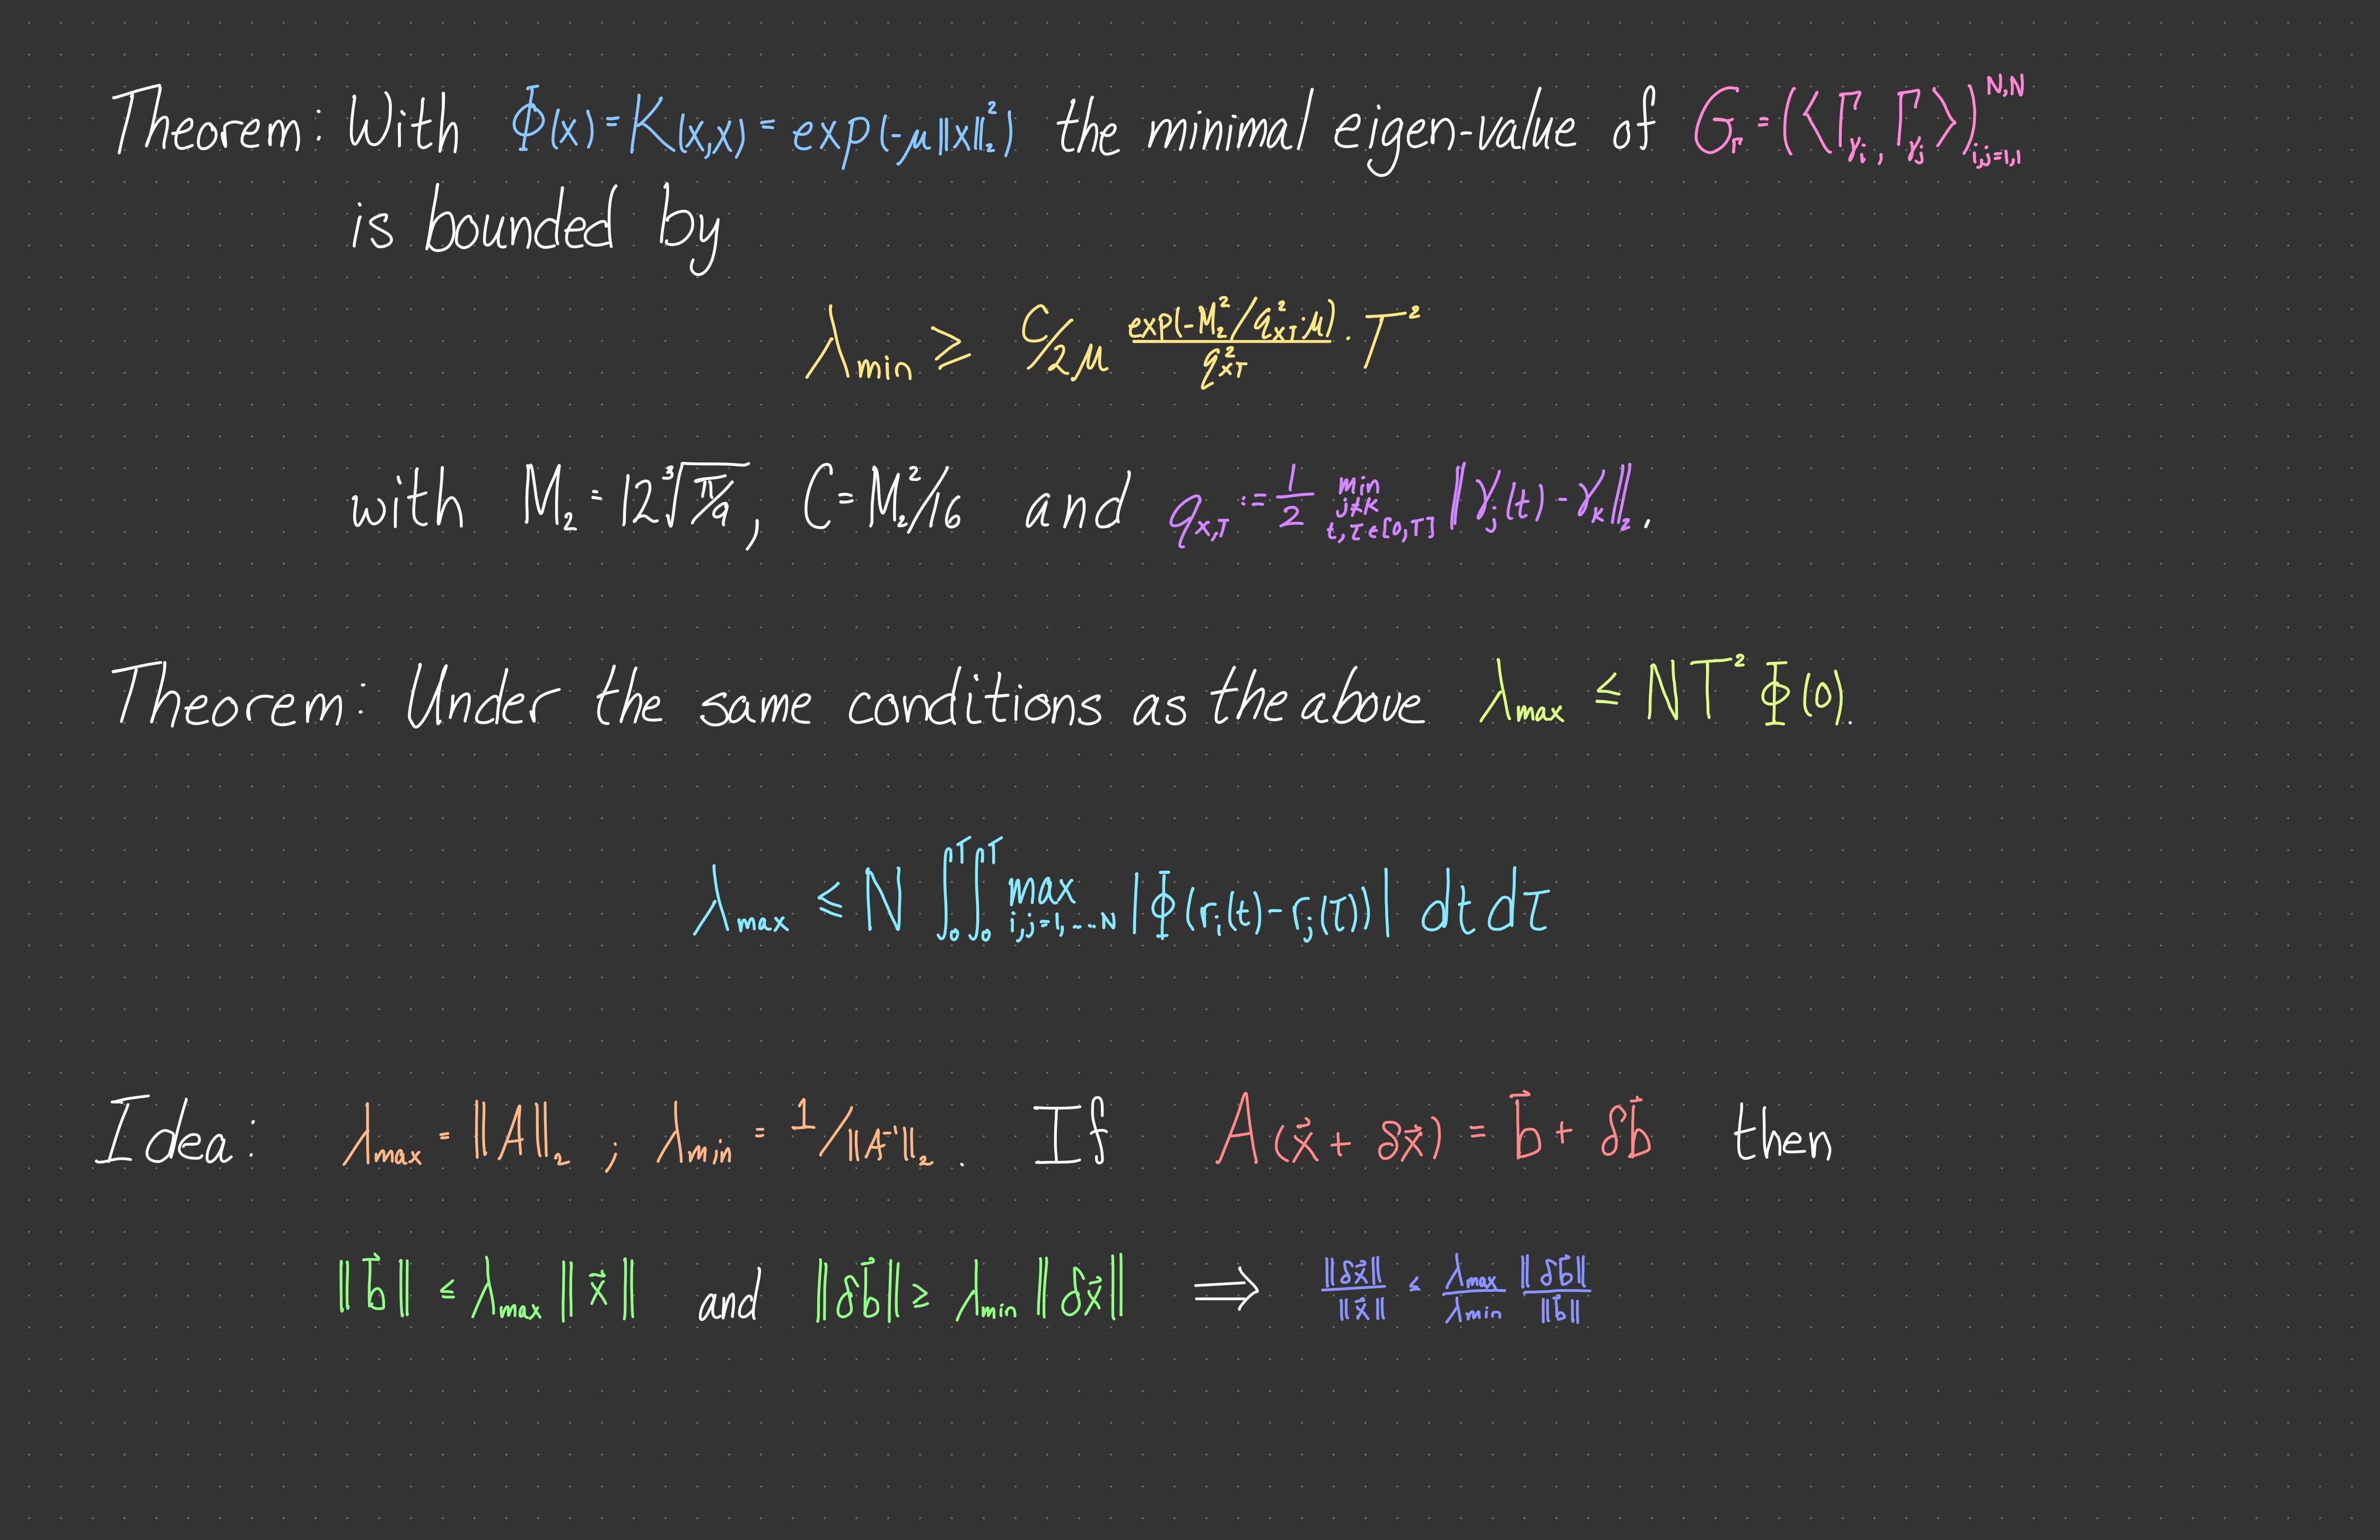 Theorem: With Φ(x) = K(x,x) = exp(-μ‖x‖₂²) the minimal eigen-value of G_Γ = (⟨Γ_γᵢ, Γ_γⱼ⟩)_{i,j=1,1}^{N,N}
is bounded by
λ_min ≥ C/2μ exp(-M₂²/q²_{xT}·μ)/q²_{xT} · T²
with M₂ = 12 ∛(π/9), C = M₂²/16 and q_{x,T} := 1/2 min_{j≠k t,τ∈[0,T]} ‖γⱼ(t) - γ_k‖₂.
Theorem: Under the same conditions as the above λ_max ≤ NT²Φ(0).
λ_max ≤ N ∫₀ᵀ∫₀ᵀ max_{i,j=1,...N} |Φ(rᵢ(t) - rⱼ(τ))| dt dτ
Idea: λ_max = ‖A‖₂ ; λ_min = 1/‖A⁻¹‖₂. If A(x⃗ + δx⃗) = b⃗ + δb⃗ then
‖b⃗‖ ≤ λ_max ‖x⃗‖ and ‖δb⃗‖ ≥ λ_min ‖δx⃗‖ ⟹ ‖δx⃗‖/‖x⃗‖ ≤ λ_max/λ_min ‖δb⃗‖/‖b⃗‖